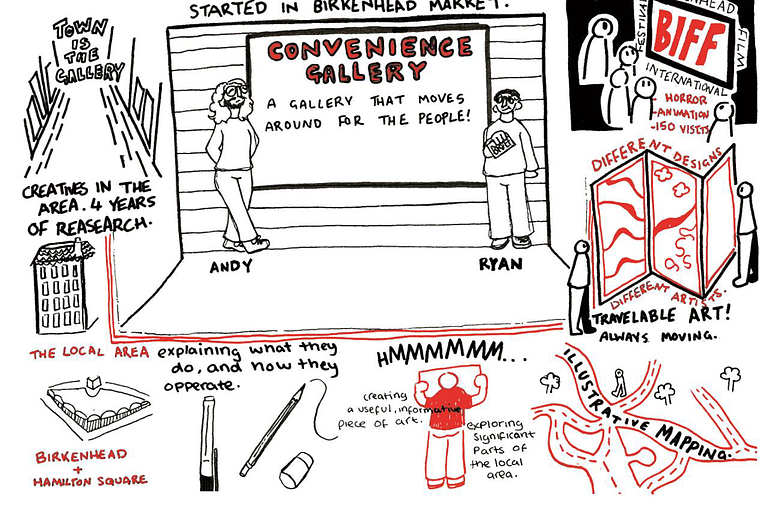 STARTED IN BIRKENHEAD MARKET.
TOWN
IS
THE
GALLERY
CREATIVES IN THE
AREA. 4 YEARS
OF REASEARCH.
CONVENIENCE
GALLERY
A GALLERY THAT MOVES
AROUND FOR THE PEOPLE!
ANDY
RYAN
FESTIVAL
FILM
BIFF
INTERNATIONAL
- HORROR
-ANIMATION
-150 VISITS
DIFFERENT DESIGNS
DIFFERENT ARTISTS.
TRAVELABLE ART!
ALWAYS MOVING.
THE LOCAL AREA
explaining what they
do, and how they
opperate.
BIRKENHEAD
+
HAMILTON SQUARE
HMMMMMM...
creating
a useful, informative
piece of art.
exploring
significant
Parts of
the local
area.
ILLUSTRATIVE MAPPING.